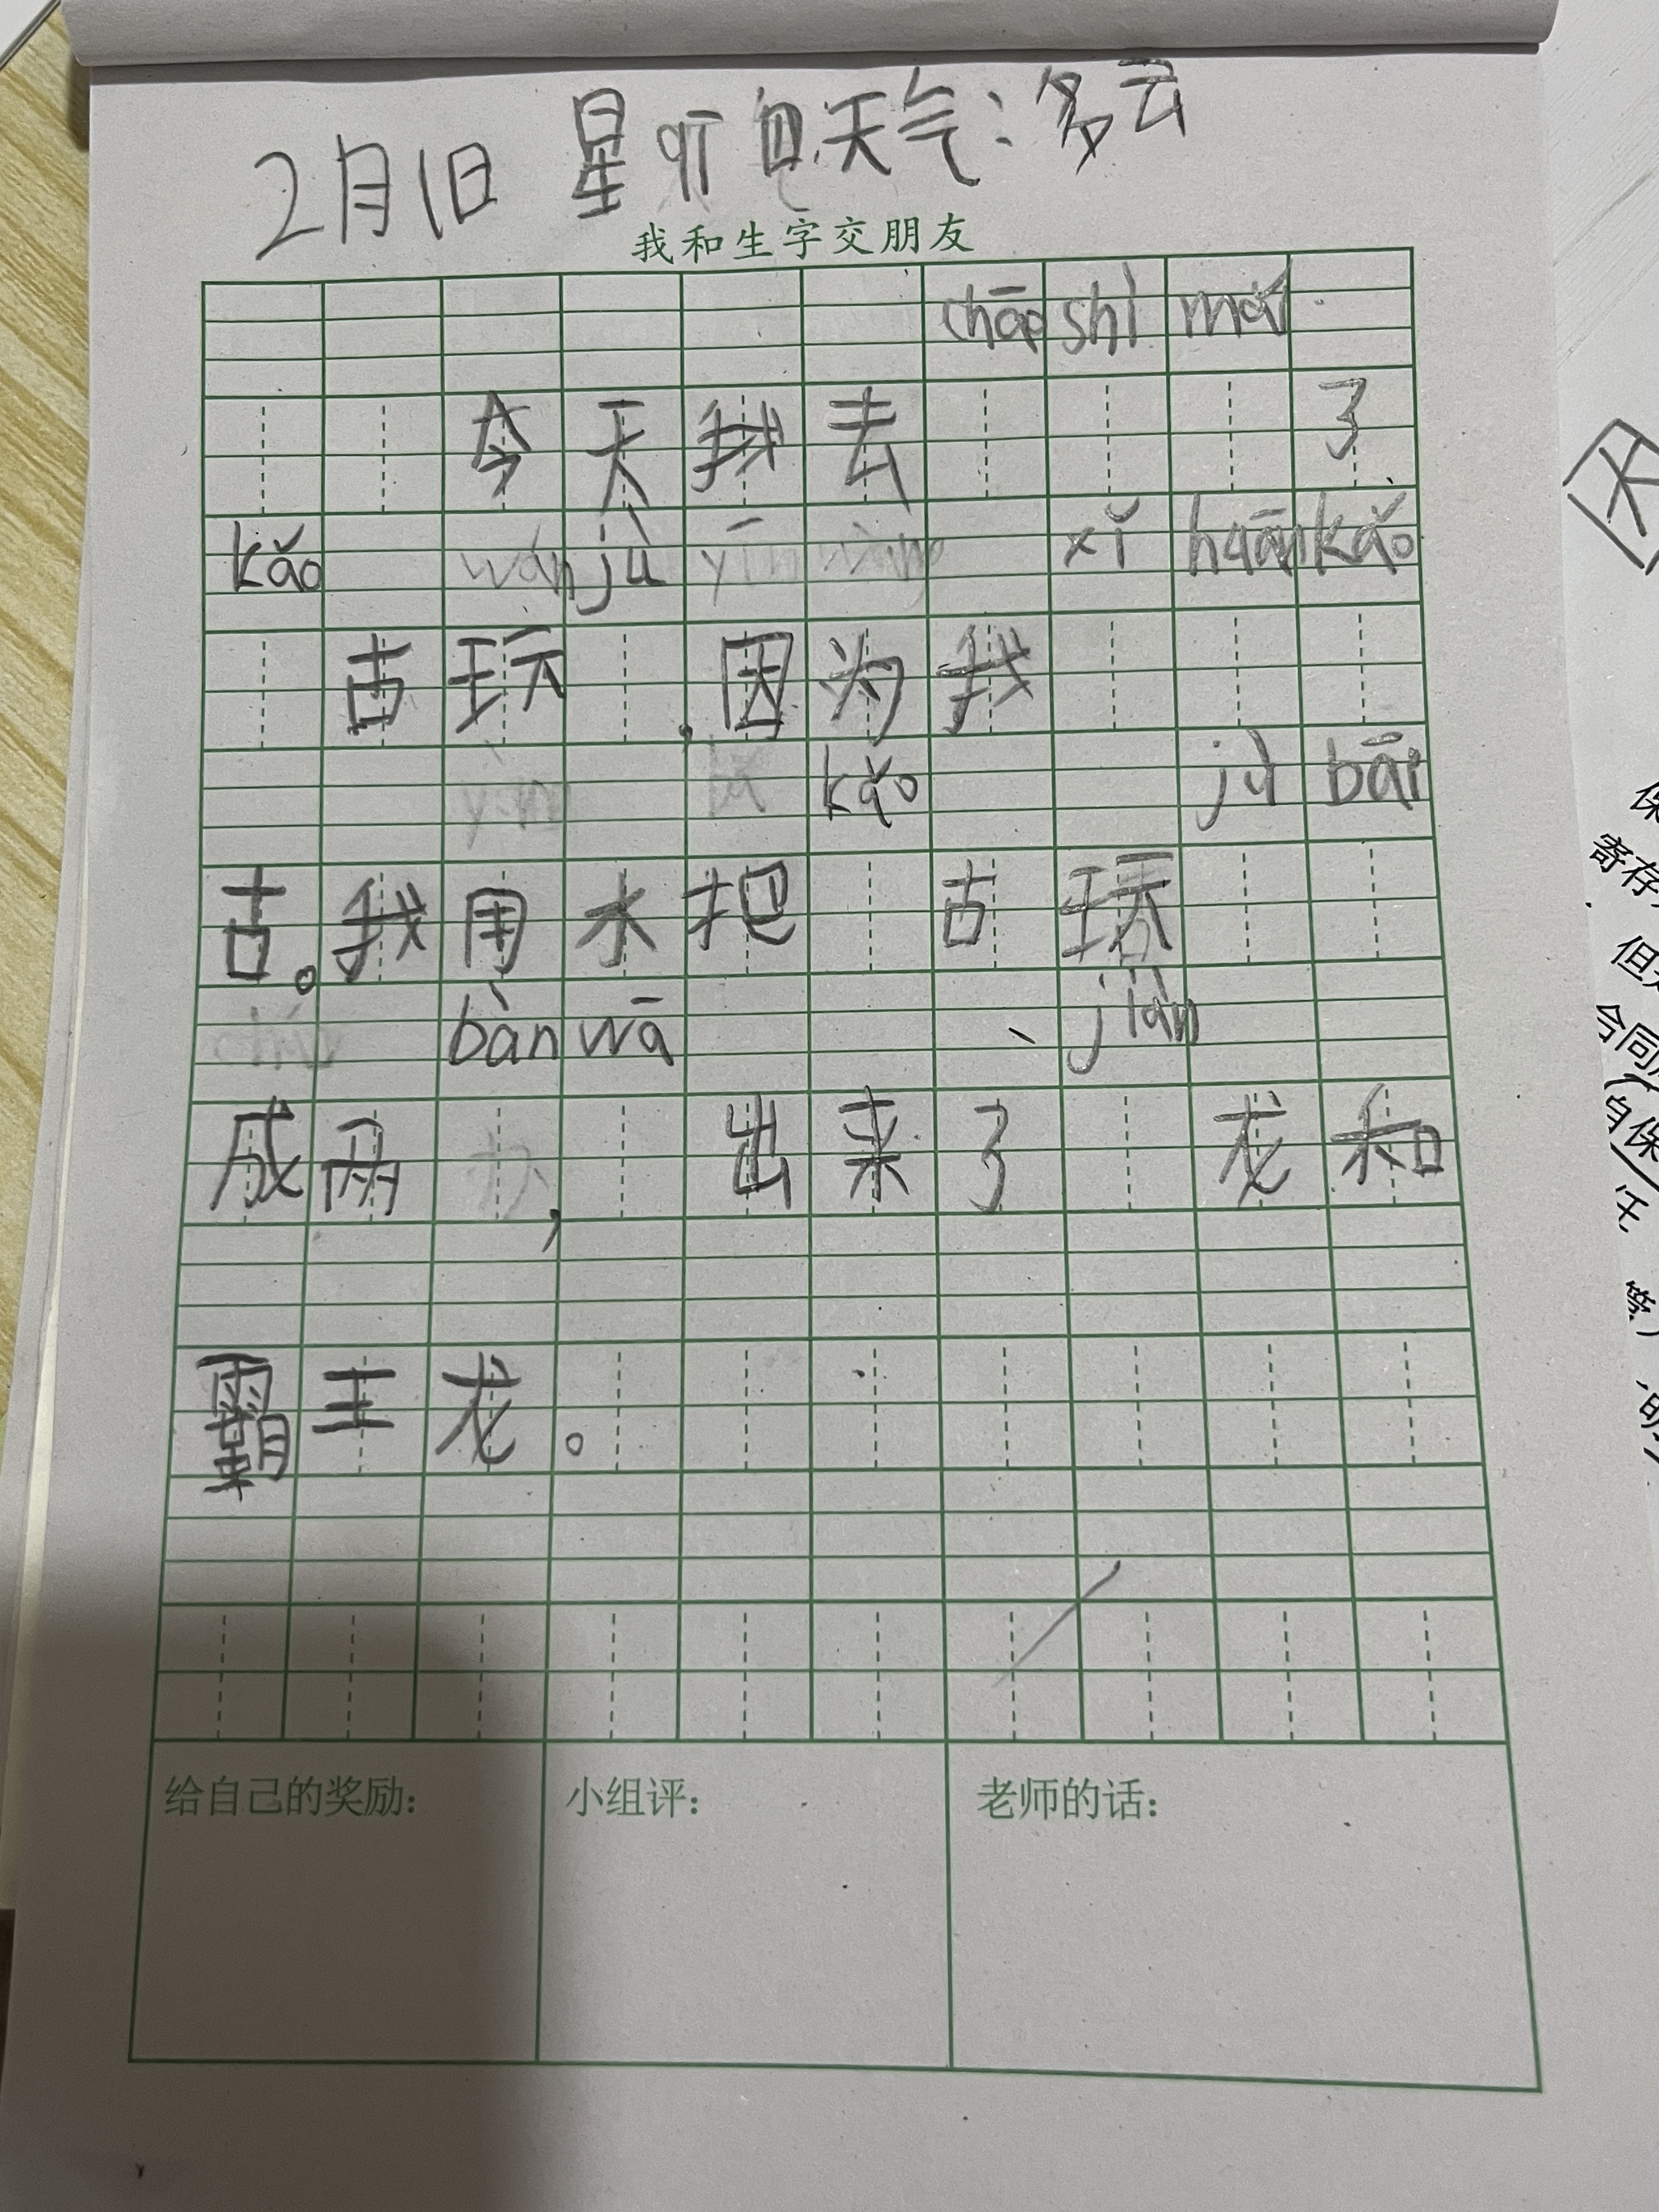 2月1日 星 天气:多云
我和生字交朋友
chāo shì mǎi
今天我去 了
kǎo wán jù yīn wèi xǐ huān kǎo
古玩 ,因为我
bǎ kǎo jù bāi
古。我用水把 古玩
bàn wā jiàn
成两 , 出来了 龙和
霸王龙。
给自己的奖励:
小组评:
老师的话:
保
寄存
合同
自保